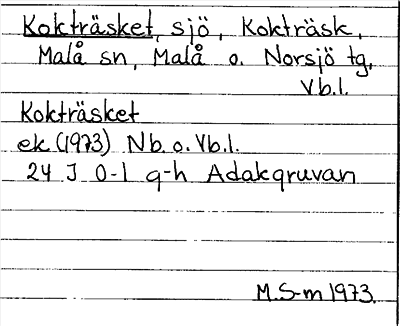 Kokträsket, sjö, Kokträsk,
Malå sn, Malå o. Norsjö tg,
Vb.l.
Kokträsket
ek (1973) Nb. o. Vb.l.
24 J 0-1 g-h Adakgruvan
M.S-m 1973.